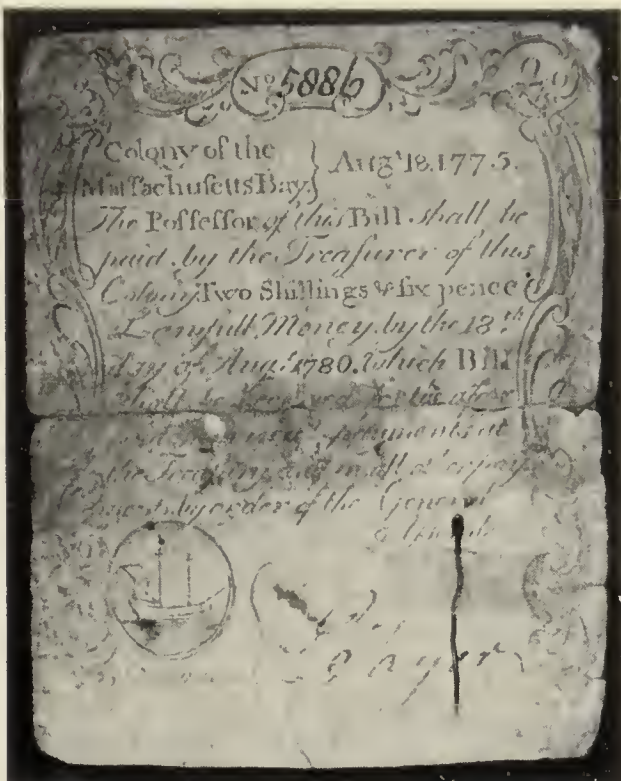 No 5886
2 6
Colony of the
Massachusetts Bay } Augt 18. 1775.
The Possessor of this Bill shall be
paid by the Treasurer of this
Colony, Two Shillings & six pence
Lawfull Money, by the 18th
Day of Augt 1780. which Bill
shall be Received for the afore
in all payments at
the Treasury and in all other pay
ments by order of the General